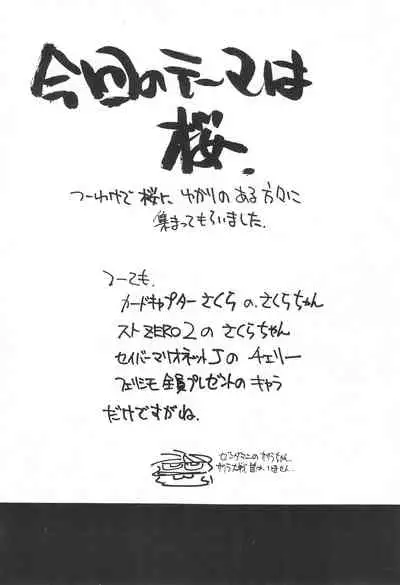 今回のテーマは
桜.
つーわけで 桜に ゆかりの ある 方々に
集まってもらいました.
つーても.
カードキャプター さくら の さくらちゃん
スト ZERO2 の さくらちゃん
セイバーマリオネットJ の チェリー
フェリシモ 全員プレゼント の キャラ
だけですがね.